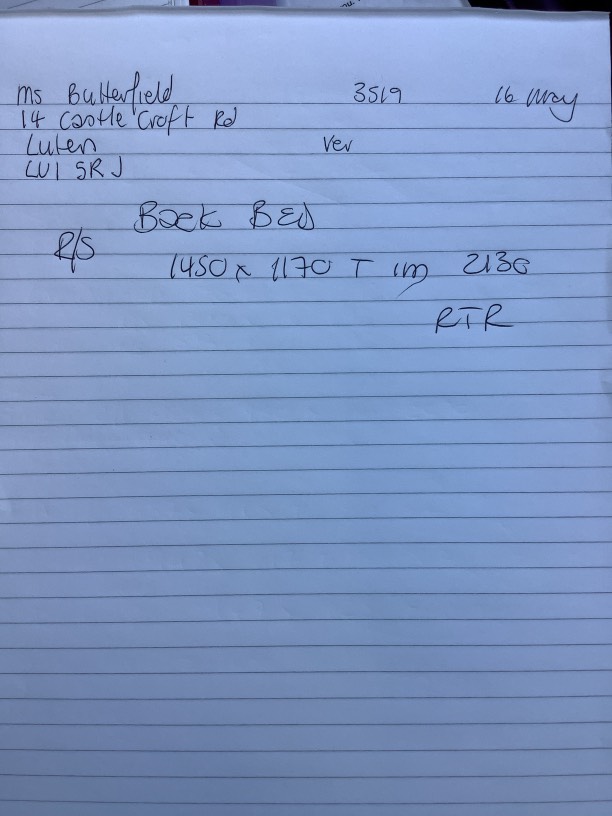 Ms Butterfield 3519 16 May
14 Castle Croft Rd
Luton Ver
LU1 5RJ
Back BED
R/S 1450 x 1170 T 1m 2136
RTR